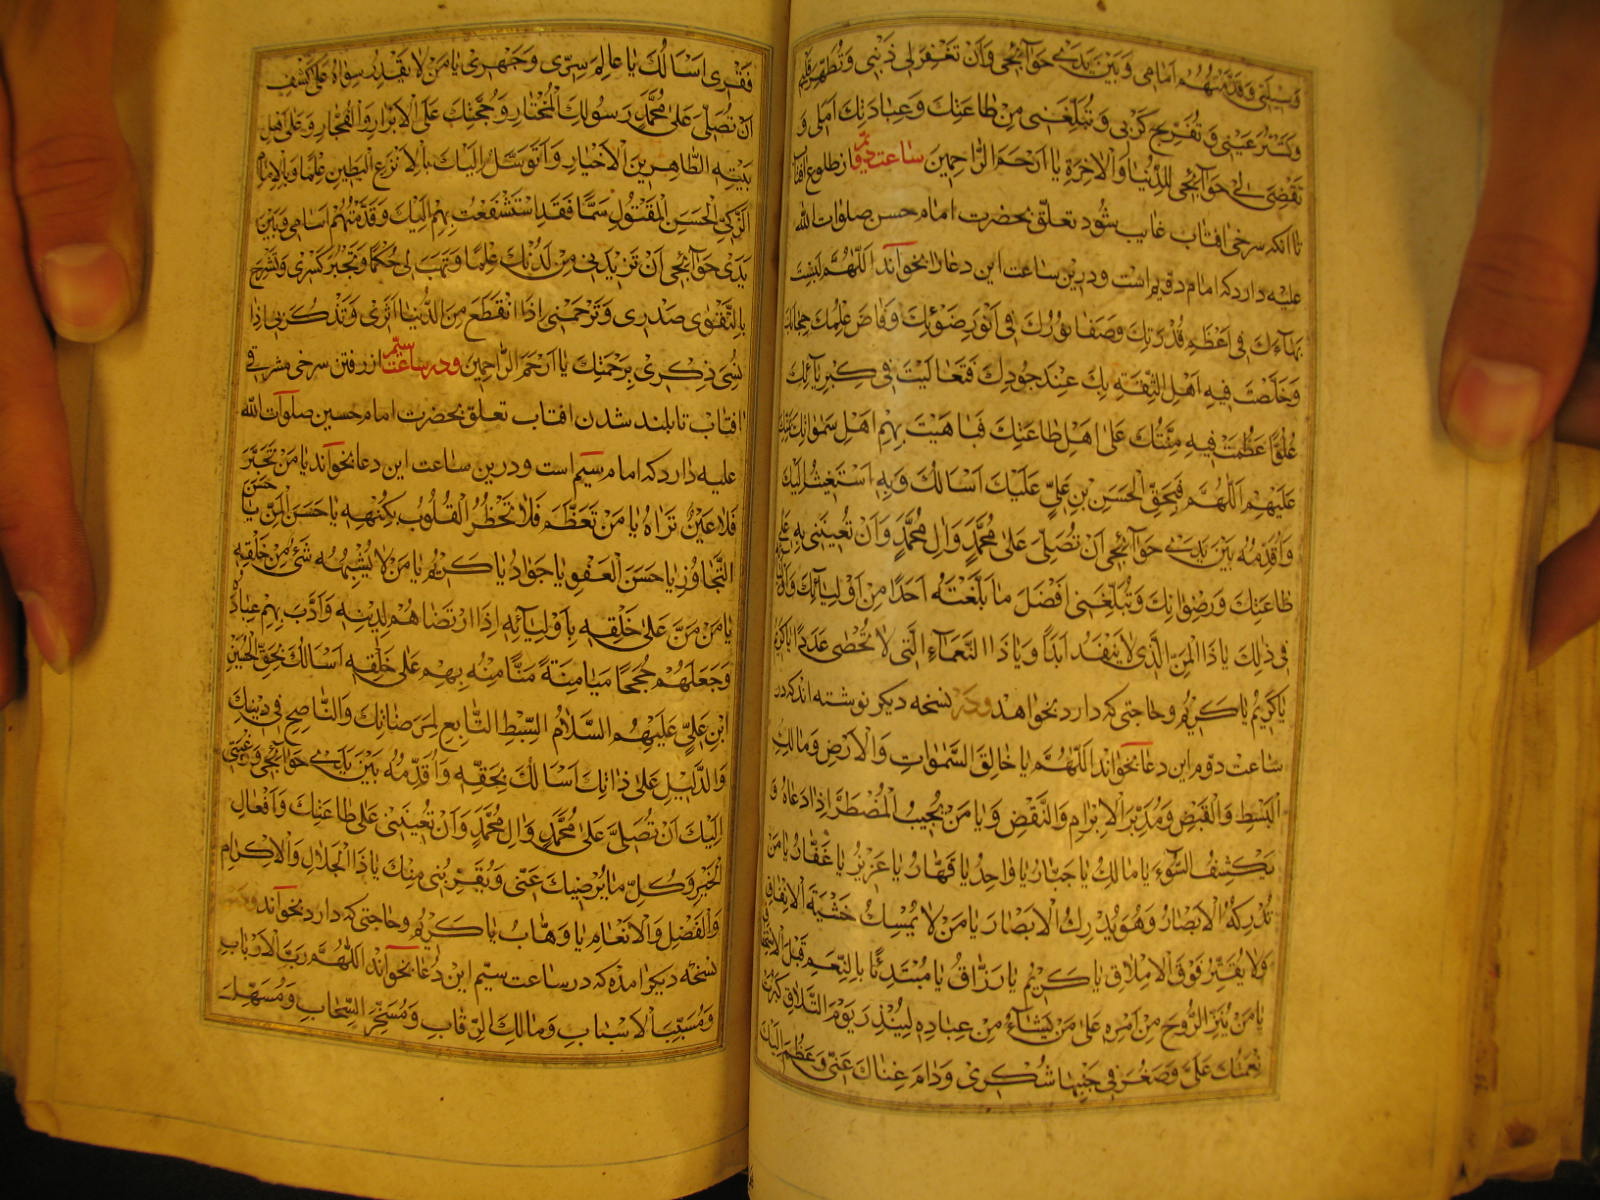 وسيلتي وقدمتهم امامي وبين يدي حوائجي وان تغفر لي ذنبي وتطهر قلبي
وتستر عيبي وتفرج كربي وتبلغني من طاعتك وعبادتك املي و
تقضي لي حوائجي للدنيا والاخرة يا ارحم الراحمين ساعت دوم از طلوع افتاب
تا انكه سرخی افتاب غایب شود تعلق بحضرت امام حسن صلوات الله
علیه دارد که امام دویم است و درین ساعت این دعا را بخواند اللهم لبست
بهاءك في اعظم قدرتك وصفا نورك في انور ضوئك وفاض علمك حجابك
وخلصت فيه اهل الثقة بك عند جودك فتعاليت في كبريائك
علوا عظمت فيه منتك على اهل طاعتك فباهيت بهم اهل سمواتك بمنتك
عليهم اللهم فبحق الحسن بن علي عليك اسالك وبه استغيث اليك
واقدمه بين يدي حوائجي ان تصلي على محمد وال محمد وان تعينني به على
طاعتك ورضوانك وتبلغني افضل ما بلغته احدا من اوليائك
في ذلك يا ذا المن الذي لا ينفد ابدا ويا ذا النعماء التي لا تحصى عددا يا كريم
يا كريم يا كريم و حاجتی که دارد بخواهد و در نسخه دیکر نوشته اند که در
ساعت دوم این دعا بخواند اللهم يا خالق السموات والارض ومالك
البسط والقبض ومدبر الابرام والنقض ويا من يجيب المضطر اذا دعاه و
يكشف السوء يا مالك يا جبار يا واحد يا قهار يا عزيز يا غفار يا من لا
تدركه الابصار وهو يدرك الابصار يا من لا يمسك خشية الانفاق
ولا يقتر فوق الاملاق يا كريم يا رزاق يا مبتدئا بالنعم قبل الاستحقاق
يا من ينزل الروح من امره على من يشاء من عباده لينذر يوم التلاق كبرت
نعمتك علي وصغر في جنبها شكري ودام غناك عني وعظم اليك
فقري اسالك يا عالم سري وجهري يا من لا يقدر سواه على كشف
ان تصلي على محمد رسولك المختار وحجتك على الابرار والفجار وعلى اهل
بيته الطاهرين الاخيار واتوسل اليك بالانزع البطين علما وبالامام
الزكي الحسن المقتول سما فقد استشفعت بهم اليك وقدمتهم امامي وبين
يدي حوائجي ان تزيدني من لدنك علما وتهب لي حكما وتجبر كسري وتشرح
بالتقوى صدري وترحمني اذا انقطع من الدنيا اثري وتذكرني اذا
نسي ذكري برحمتك يا ارحم الراحمين و در ساعت سیم از رفتن سرخی مشرقی
افتاب تا بلند شدن افتاب تعلق بحضرت امام حسین صلوات الله
علیه دارد که امام سیم است و درین ساعت این دعا بخواند يا من تجبر
فلا عين تراه يا من تعظم فلا تخطر القلوب بكنهه يا حسن المن يا حسن
التجاوز يا حسن العفو يا جواد يا كريم يا من لا يشبهه شيء من خلقه
يا من من على خلقه باوليائه اذا ارتضاهم لدينه وادب بهم عباده
وجعلهم حججا ميامنة منا منه بهم على خلقه اسالك بحق الحسين
ابن علي عليهم السلام السبط التابع لمرضاتك والناصح في دينك
والدليل على ذاتك اسالك بحقه واقدمه بين يدي حوائجي ورغبتي
اليك ان تصلي على محمد وال محمد وان تعينني على طاعتك وافعال
الخير وكل ما يرضيك عني ويقربني منك يا ذا الجلال والاكرام
والفضل والانعام يا وهاب يا كريم و حاجتی که دارد بخواند ودر
نسخه دیکر امده که در ساعت سیم این دعا بخواند اللهم رب الارباب
ومسبب الاسباب ومالك الرقاب ومسخر السحاب ومسهل